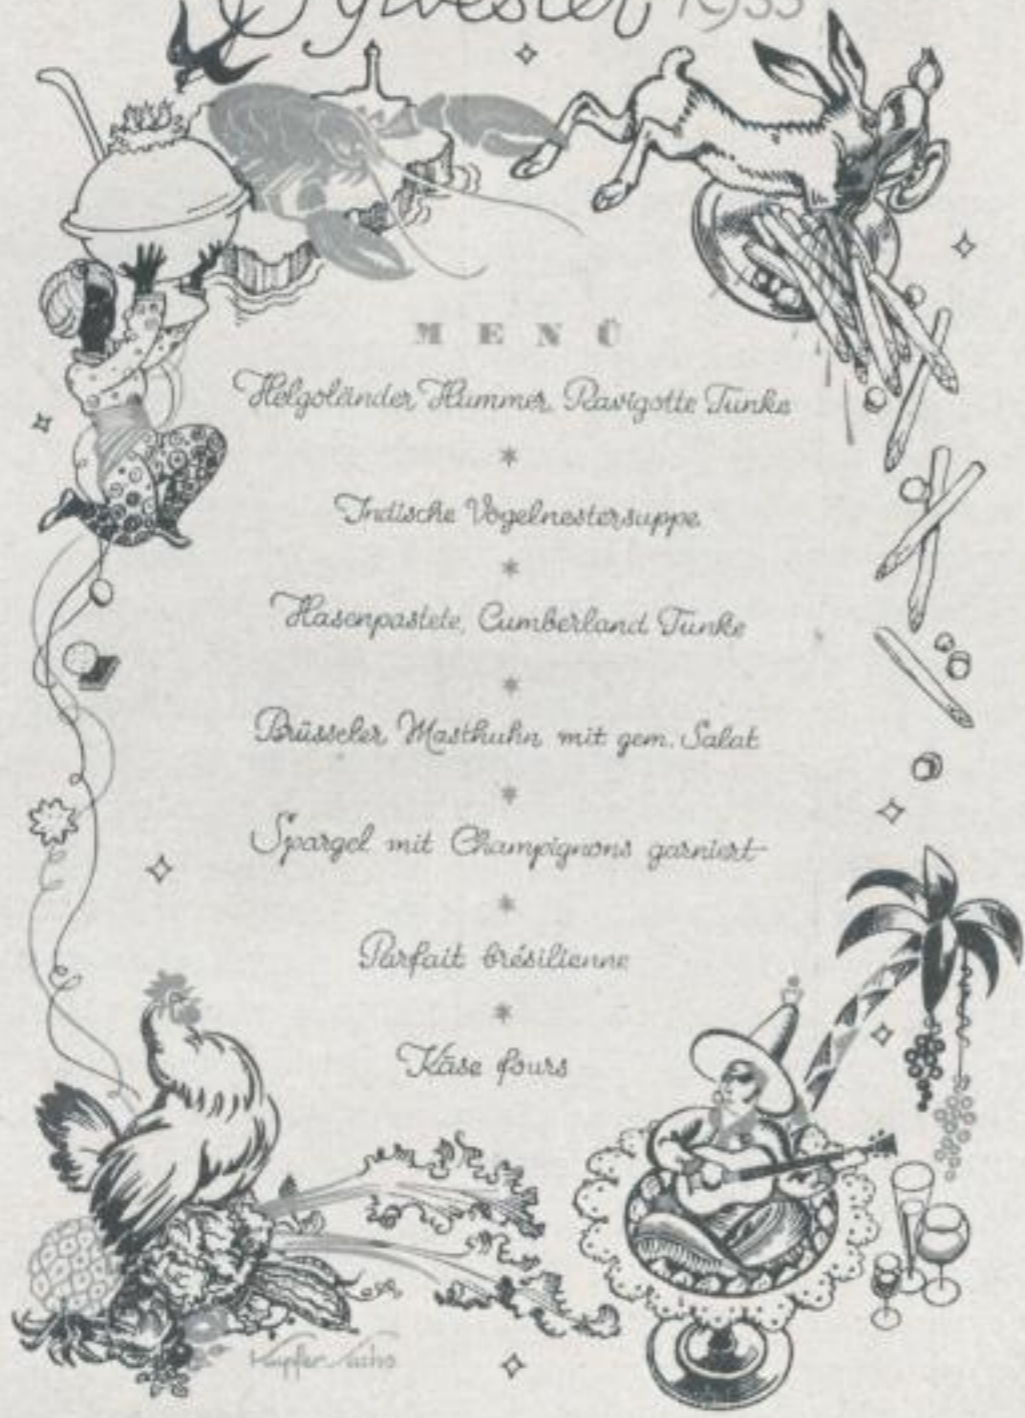 Sylvester 1933
MENÜ
Helgoländer Hummer, Ravigotte Tunke
Indische Vogelnestersuppe
Hasenpastete, Cumberland Tunke
Brüsseler Masthuhn mit gem. Salat
Spargel mit Champignons garniert
Parfait brésilienne
Käse fours